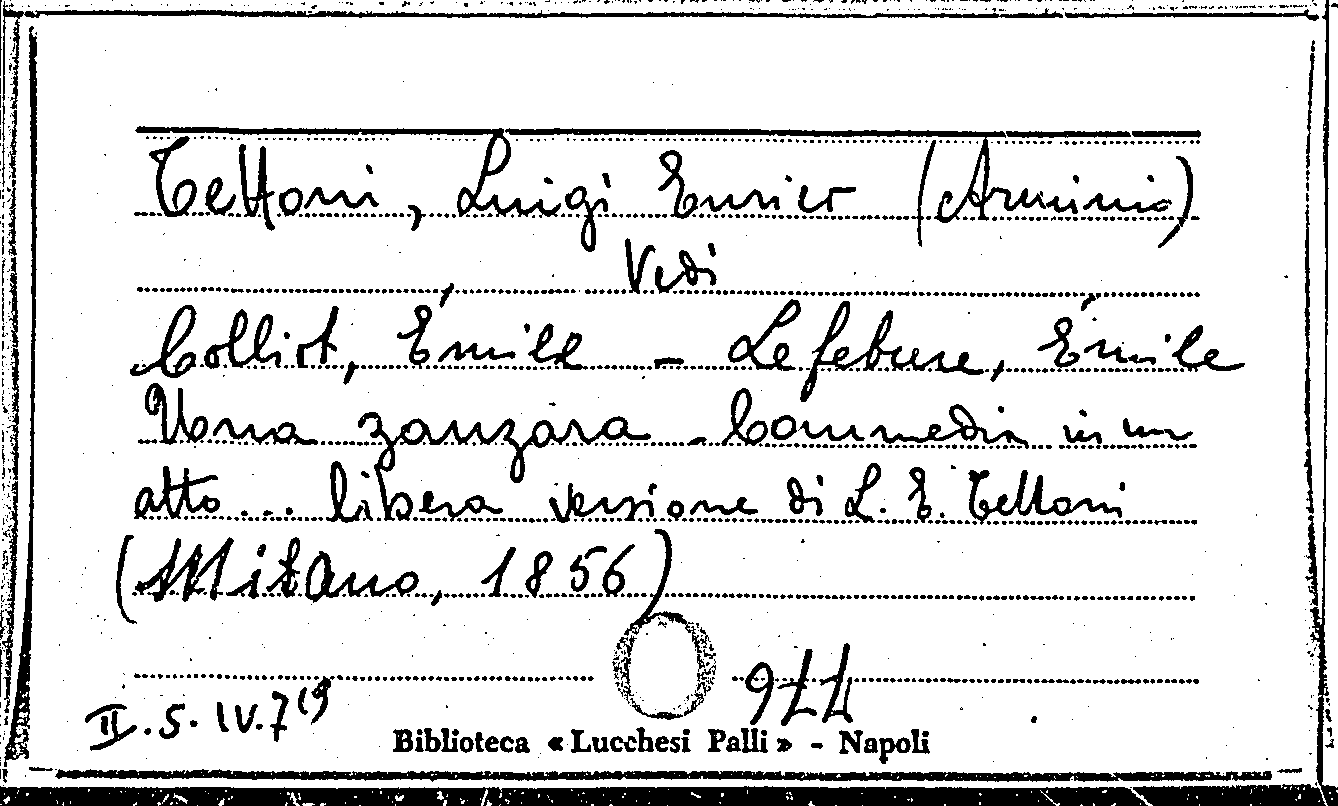 Tettoni, Luigi Enrico (Arminio)
Vedi
Colliot, Émile - Lefebure, Émile
Una zanzara - Commedia in un
atto... libera versione di L. E. Tettoni
(Milano, 1856)
II. S. IV. 7(9
Biblioteca « Lucchesi Palli » - Napoli